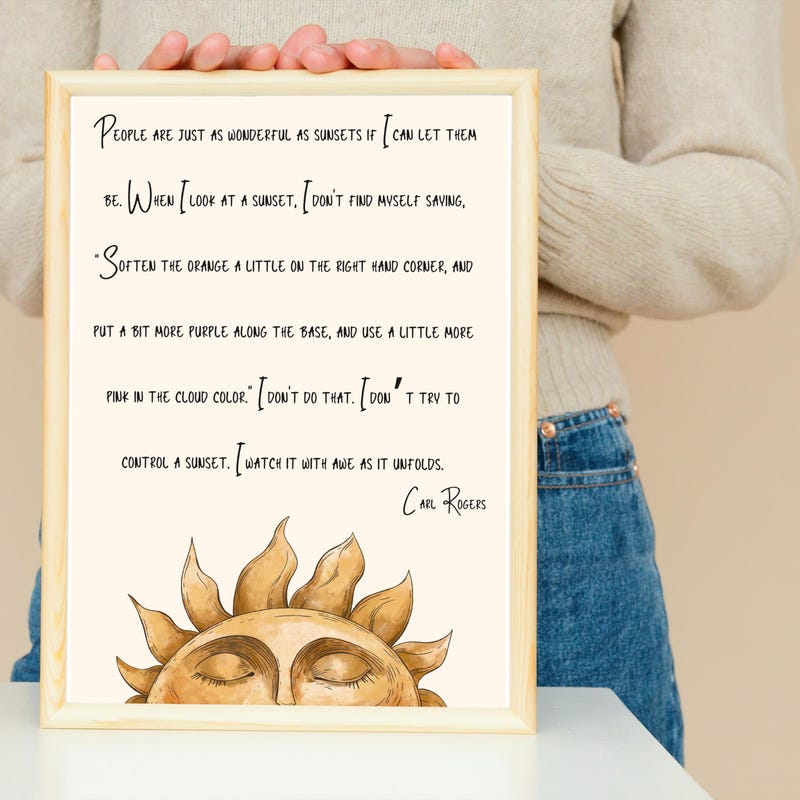 People are just as wonderful as sunsets if I can let them
be. When I look at a sunset, I don't find myself saying,
"Soften the orange a little on the right hand corner, and
put a bit more purple along the base, and use a little more
pink in the cloud color." I don't do that. I don't try to
control a sunset. I watch it with awe as it unfolds.
Carl Rogers